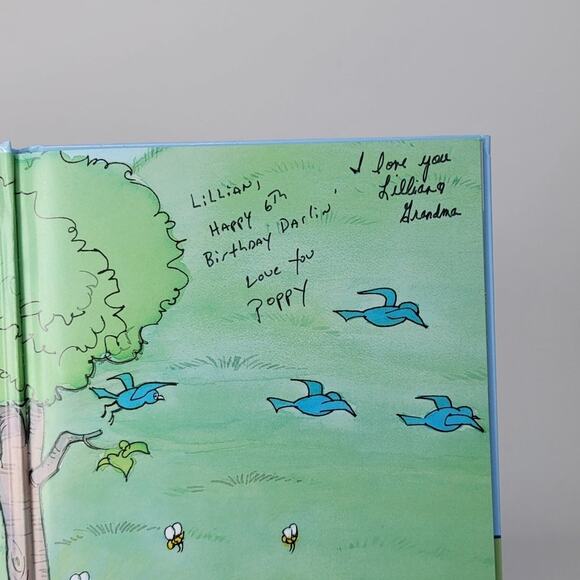 LiLLiAN,
HAPPY 6th
BirthDAY DArlin'
Love You
POPPY
I love you
Lillian
Grandma